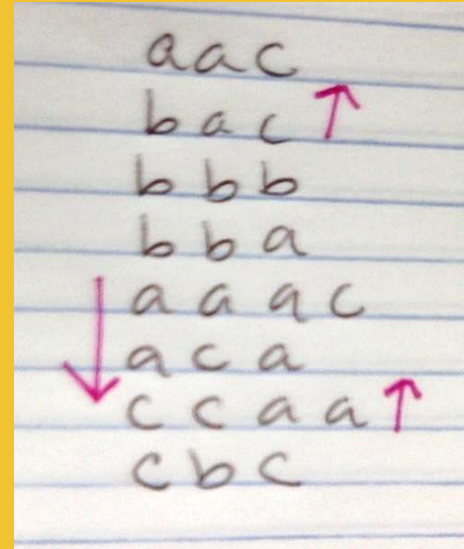 aac
bac ↑
bbb
bba
aaac
aca
ccaa ↑
cbc